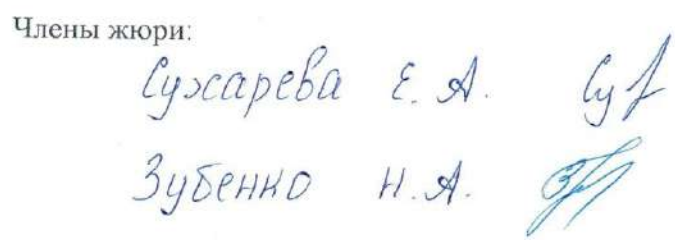 Члены жюри:
Сухарева Е. А.
Зубенко Н. А.